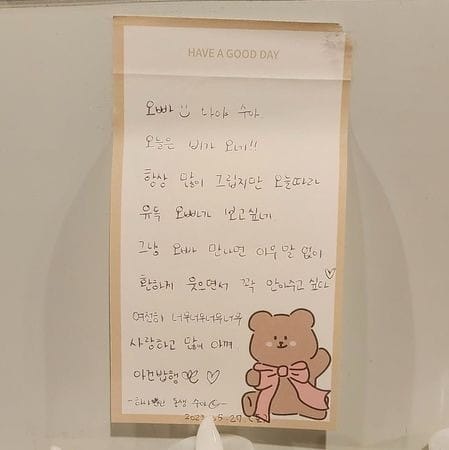 HAVE A GOOD DAY
오빠 나야 수아
오늘은 비가 오네!!
항상 많이 그립지만 오늘따라
유독 오빠가 보고싶네
그냥 오빠 만나면 아무 말 없이
환하게 웃으면서 꽉 안아주고 싶다♡
여전히 너무너무너무너무
사랑하고 많이 아껴
동생 수아